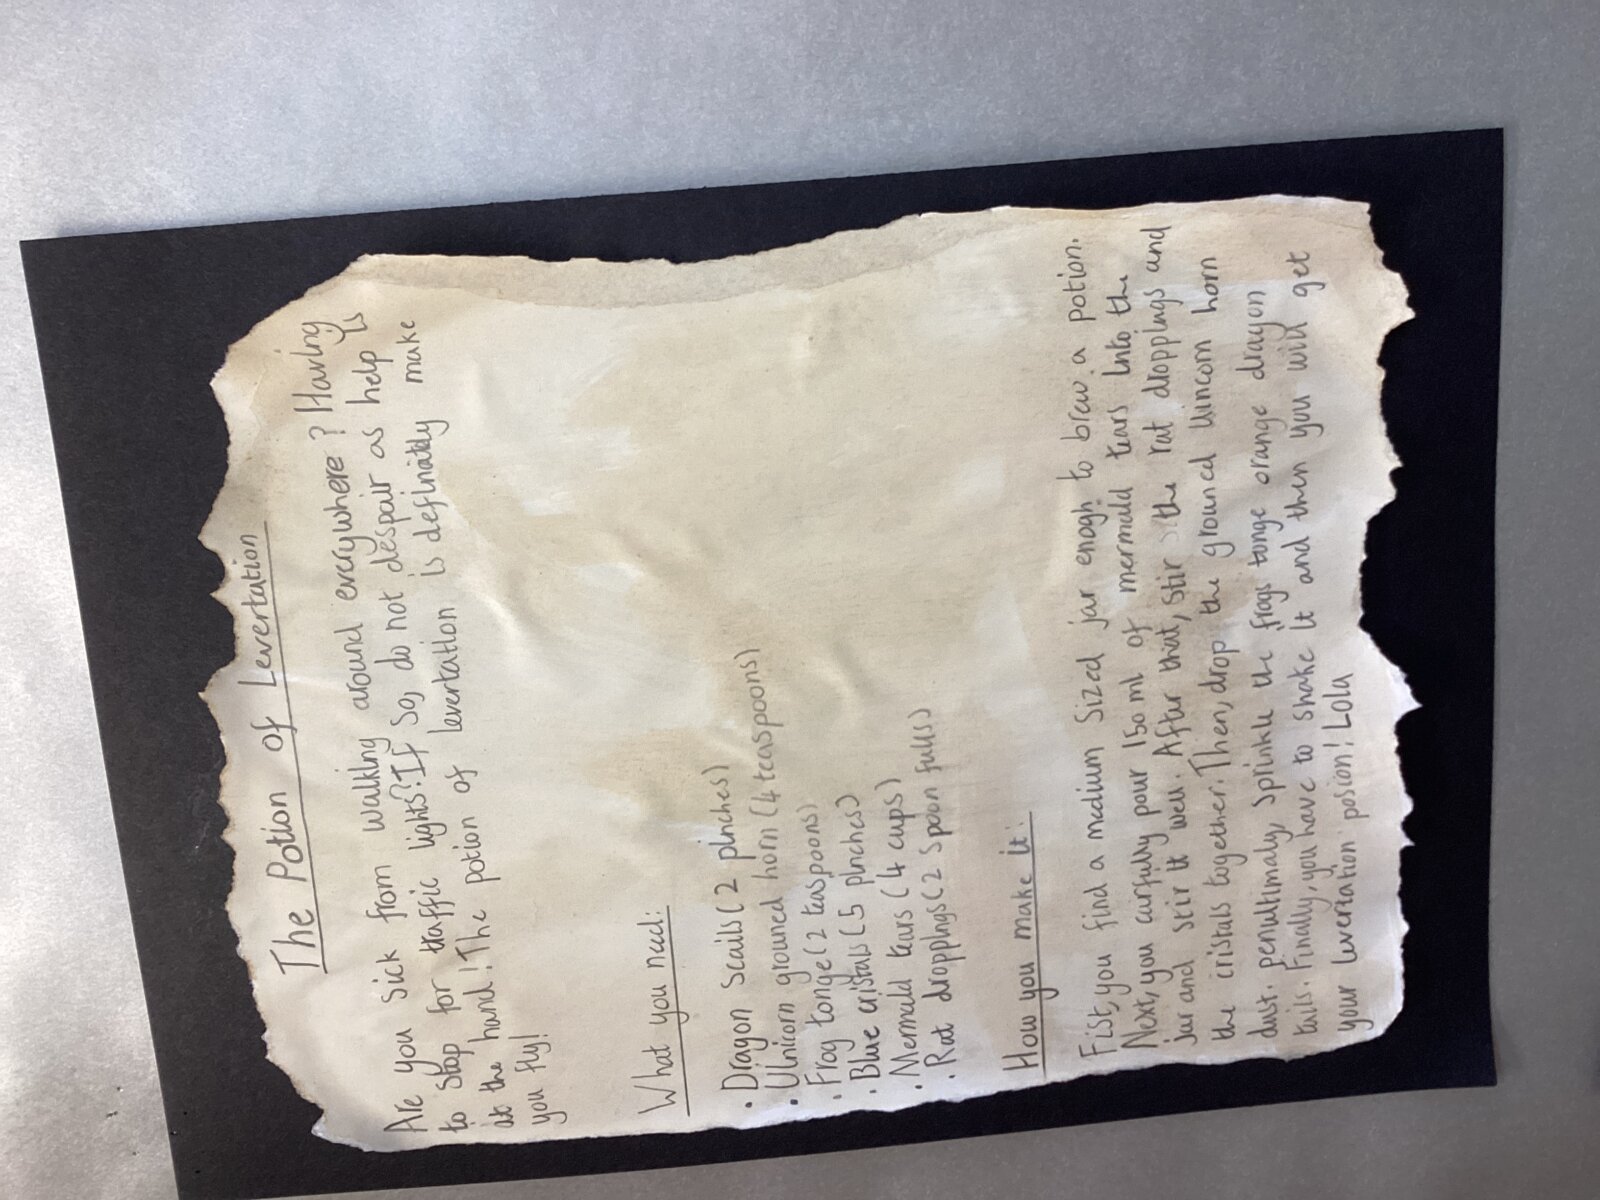 The Potion of Levertation
Are you sick from walking around everywhere? Having
to stop for traffic lights? If so, do not despair as help is
at the hand! The potion of levertation is definitely make
you fly!
What you need:
• Dragon scails (2 pinches)
• Unicorn grouned horn (4 teaspoons)
• Frog tonge (2 teaspoons)
• Blue cristals (5 pinches)
• Mermaid tears (4 cups)
• Rat droppings (2 spoon fulls)
How you make it:
Fist, you find a medium sized jar enogh to brew a potion.
Next, you carfully pour 150 ml of mermaid tears into the
jar and stir it well. After that, stir the rat droppings and
the cristals together. Then, drop the grouned unicorn horn
dust. penultimaly, sprinkle the frogs tonge orange dragon
tails. Finally, you have to shake it and then you will get
your levertation posion! Lola